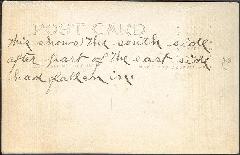 POST CARD
this shows the south side
after part of the east side
had fallen in.